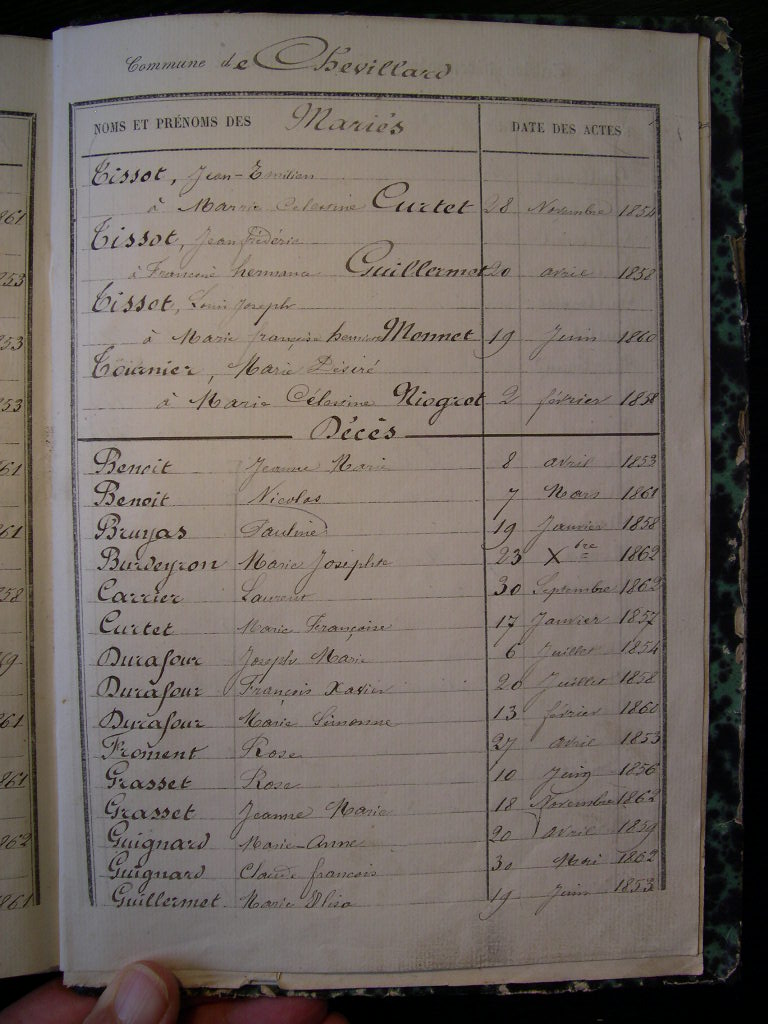 Commune de Chevillard
NOMS ET PRÉNOMS DES Mariés DATE DES ACTES
Tissot, Jean-Emilien
à Marie Celestine Curtet 28 Novembre 1854
Tissot, Jean frédéric
à Francine hermance Guillermet 20 avril 1858
Tissot, Louis Joseph
à Marie françoise Monnet 19 Juin 1860
Tournier, Marie Désiré
à Marie Célestine Niogret 2 février 1858
Décès
861
Benoit Jeanne Marie 8 avril 1853
Benoit Nicolas 7 Mars 1861
253
Bruyas Pauline 19 Janvier 1858
Burdeyron Marie Josephte 23 Xbre 1862
853
Carrier Laurent 30 Septembre 1862
Curtet Marie Françoise 17 Janvier 1857
853
Durafour Joseph Marie 6 Juillet 1854
Durafour François Xavier 20 Juillet 1858
861
Durafour Marie Simonne 13 février 1860
Froment Rose 27 avril 1853
861
Grasset Rose 10 Juin 1856
Grasset Jeanne Marie 18 Novembre 1862
858
Guignard Marie-Anne 20 avril 1859
Guignard Claude francois 30 Mai 1862
Guillermet Marie Elisa 19 Juin 1853
861
861
862
861